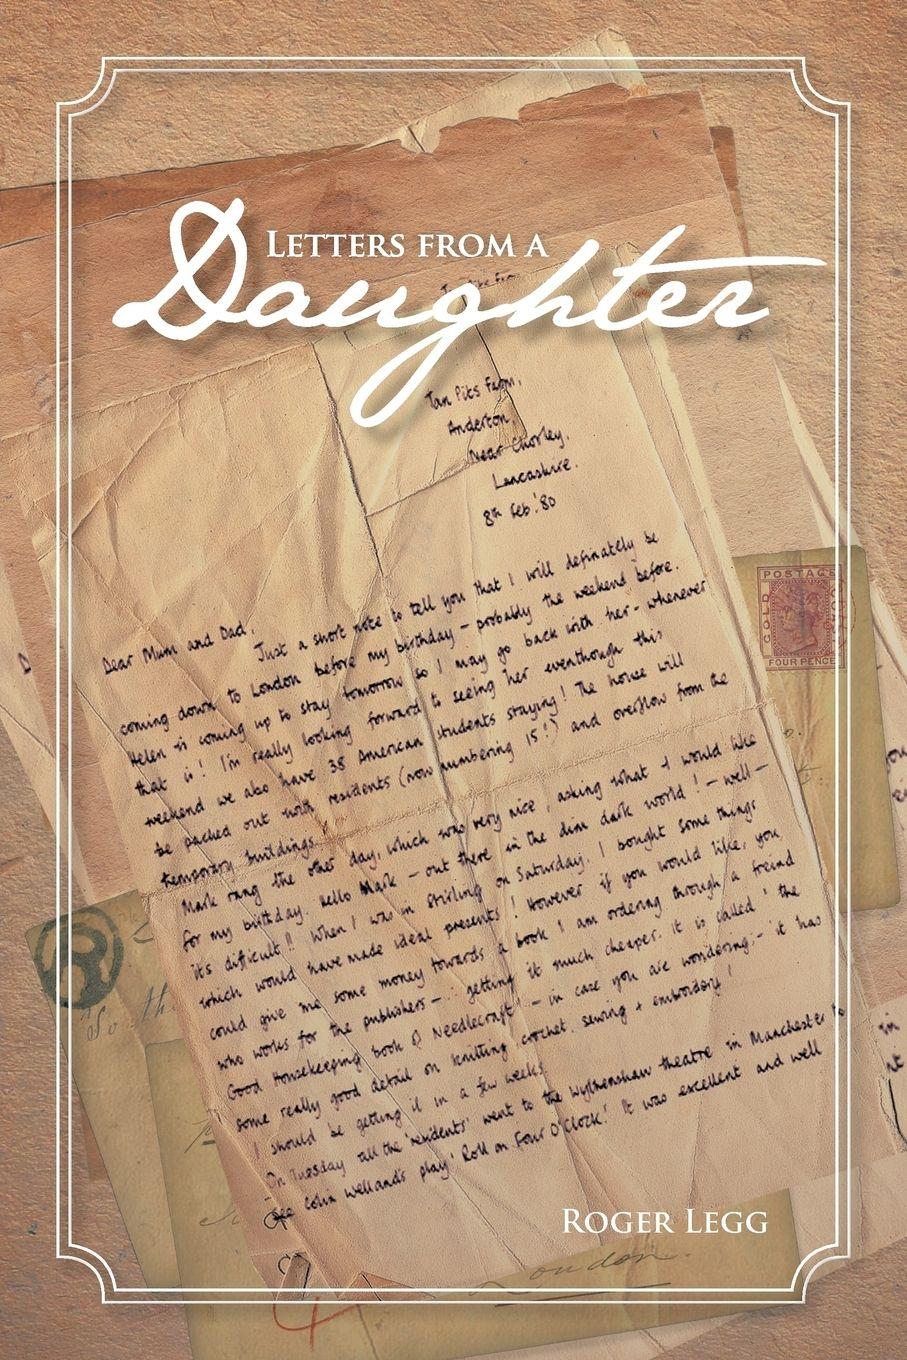 LETTERS FROM A
Daughter
Tan Pits Farm,
Anderton,
Near Chorley.
Lancashire.
8th Feb. '80
Dear Mum and Dad,
Just a short note to tell you that I will definately be
coming down to London before my birthday – probably the weekend before.
Helen is coming up to stay tomorrow so I may go back with her – whenever
that is! I'm really looking forward to seeing her eventhough this
weekend we also have 38 American students staying! The house will
be packed out with residents (now numbering 15!) and overflow from the
temporary buildings.
Mark rang the other day, which was very nice, asking what I would like
for my birthday. Hello Mark – out there in the dim dark world! – well –
it's difficult!! When I was in Stirling on Saturday, I bought some things
which would have made ideal presents! However if you would like, you
could give me some money towards a book I am ordering through a freind
who works for the publishers – getting it much cheaper. It is called 'the
Good Housekeeping book of Needlecraft' – in case you are wondering – it has
some really good detail on knitting crochet, sewing + embroidery!
I should be getting it in a few weeks.
On Tuesday all the 'residents' went to the Wythenshaw theatre in Manchester to
see Colin Welland's play 'Roll on Four O'Clock'. It was excellent and well
POSTAGE
GOLD
FOUR PENCE
South
London.
ROGER LEGG